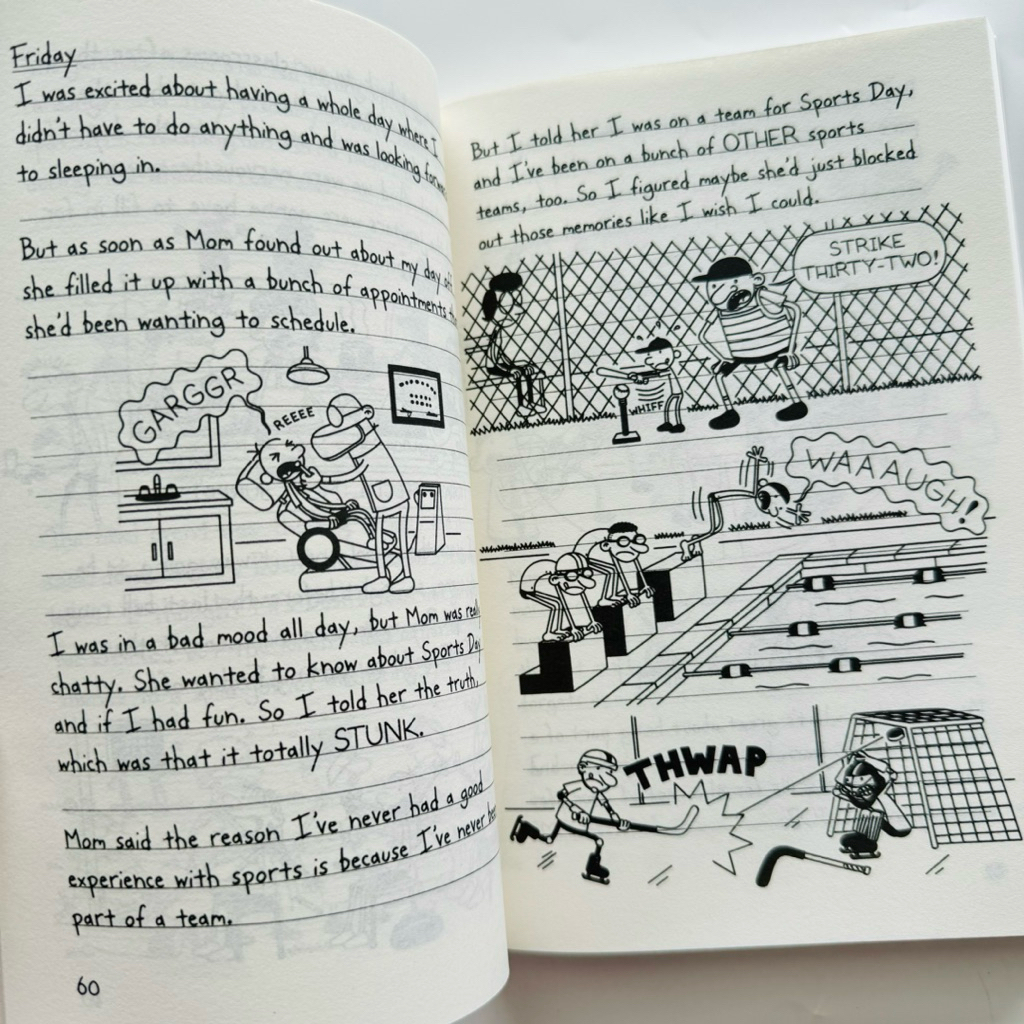 Friday
I was excited about having a whole day where I
didn't have to do anything and was looking
to sleeping in.
But as soon as Mom found out about my day
she filled it up with a bunch of appointments
she'd been wanting to schedule.
GARGGR
REEEE
I was in a bad mood all day, but Mom was
chatty. She wanted to know about Sports
and if I had fun. So I told her the truth,
which was that it totally STUNK.
Mom said the reason I've never had a good
experience with sports is because I've never
part of a team.
60
But I told her I was on a team for Sports Day,
and I've been on a bunch of OTHER sports
teams, too. So I figured maybe she'd just blocked
out those memories like I wish I could.
STRIKE
THIRTY-TWO!
WHIFF
WAAAUGH!
THWAP